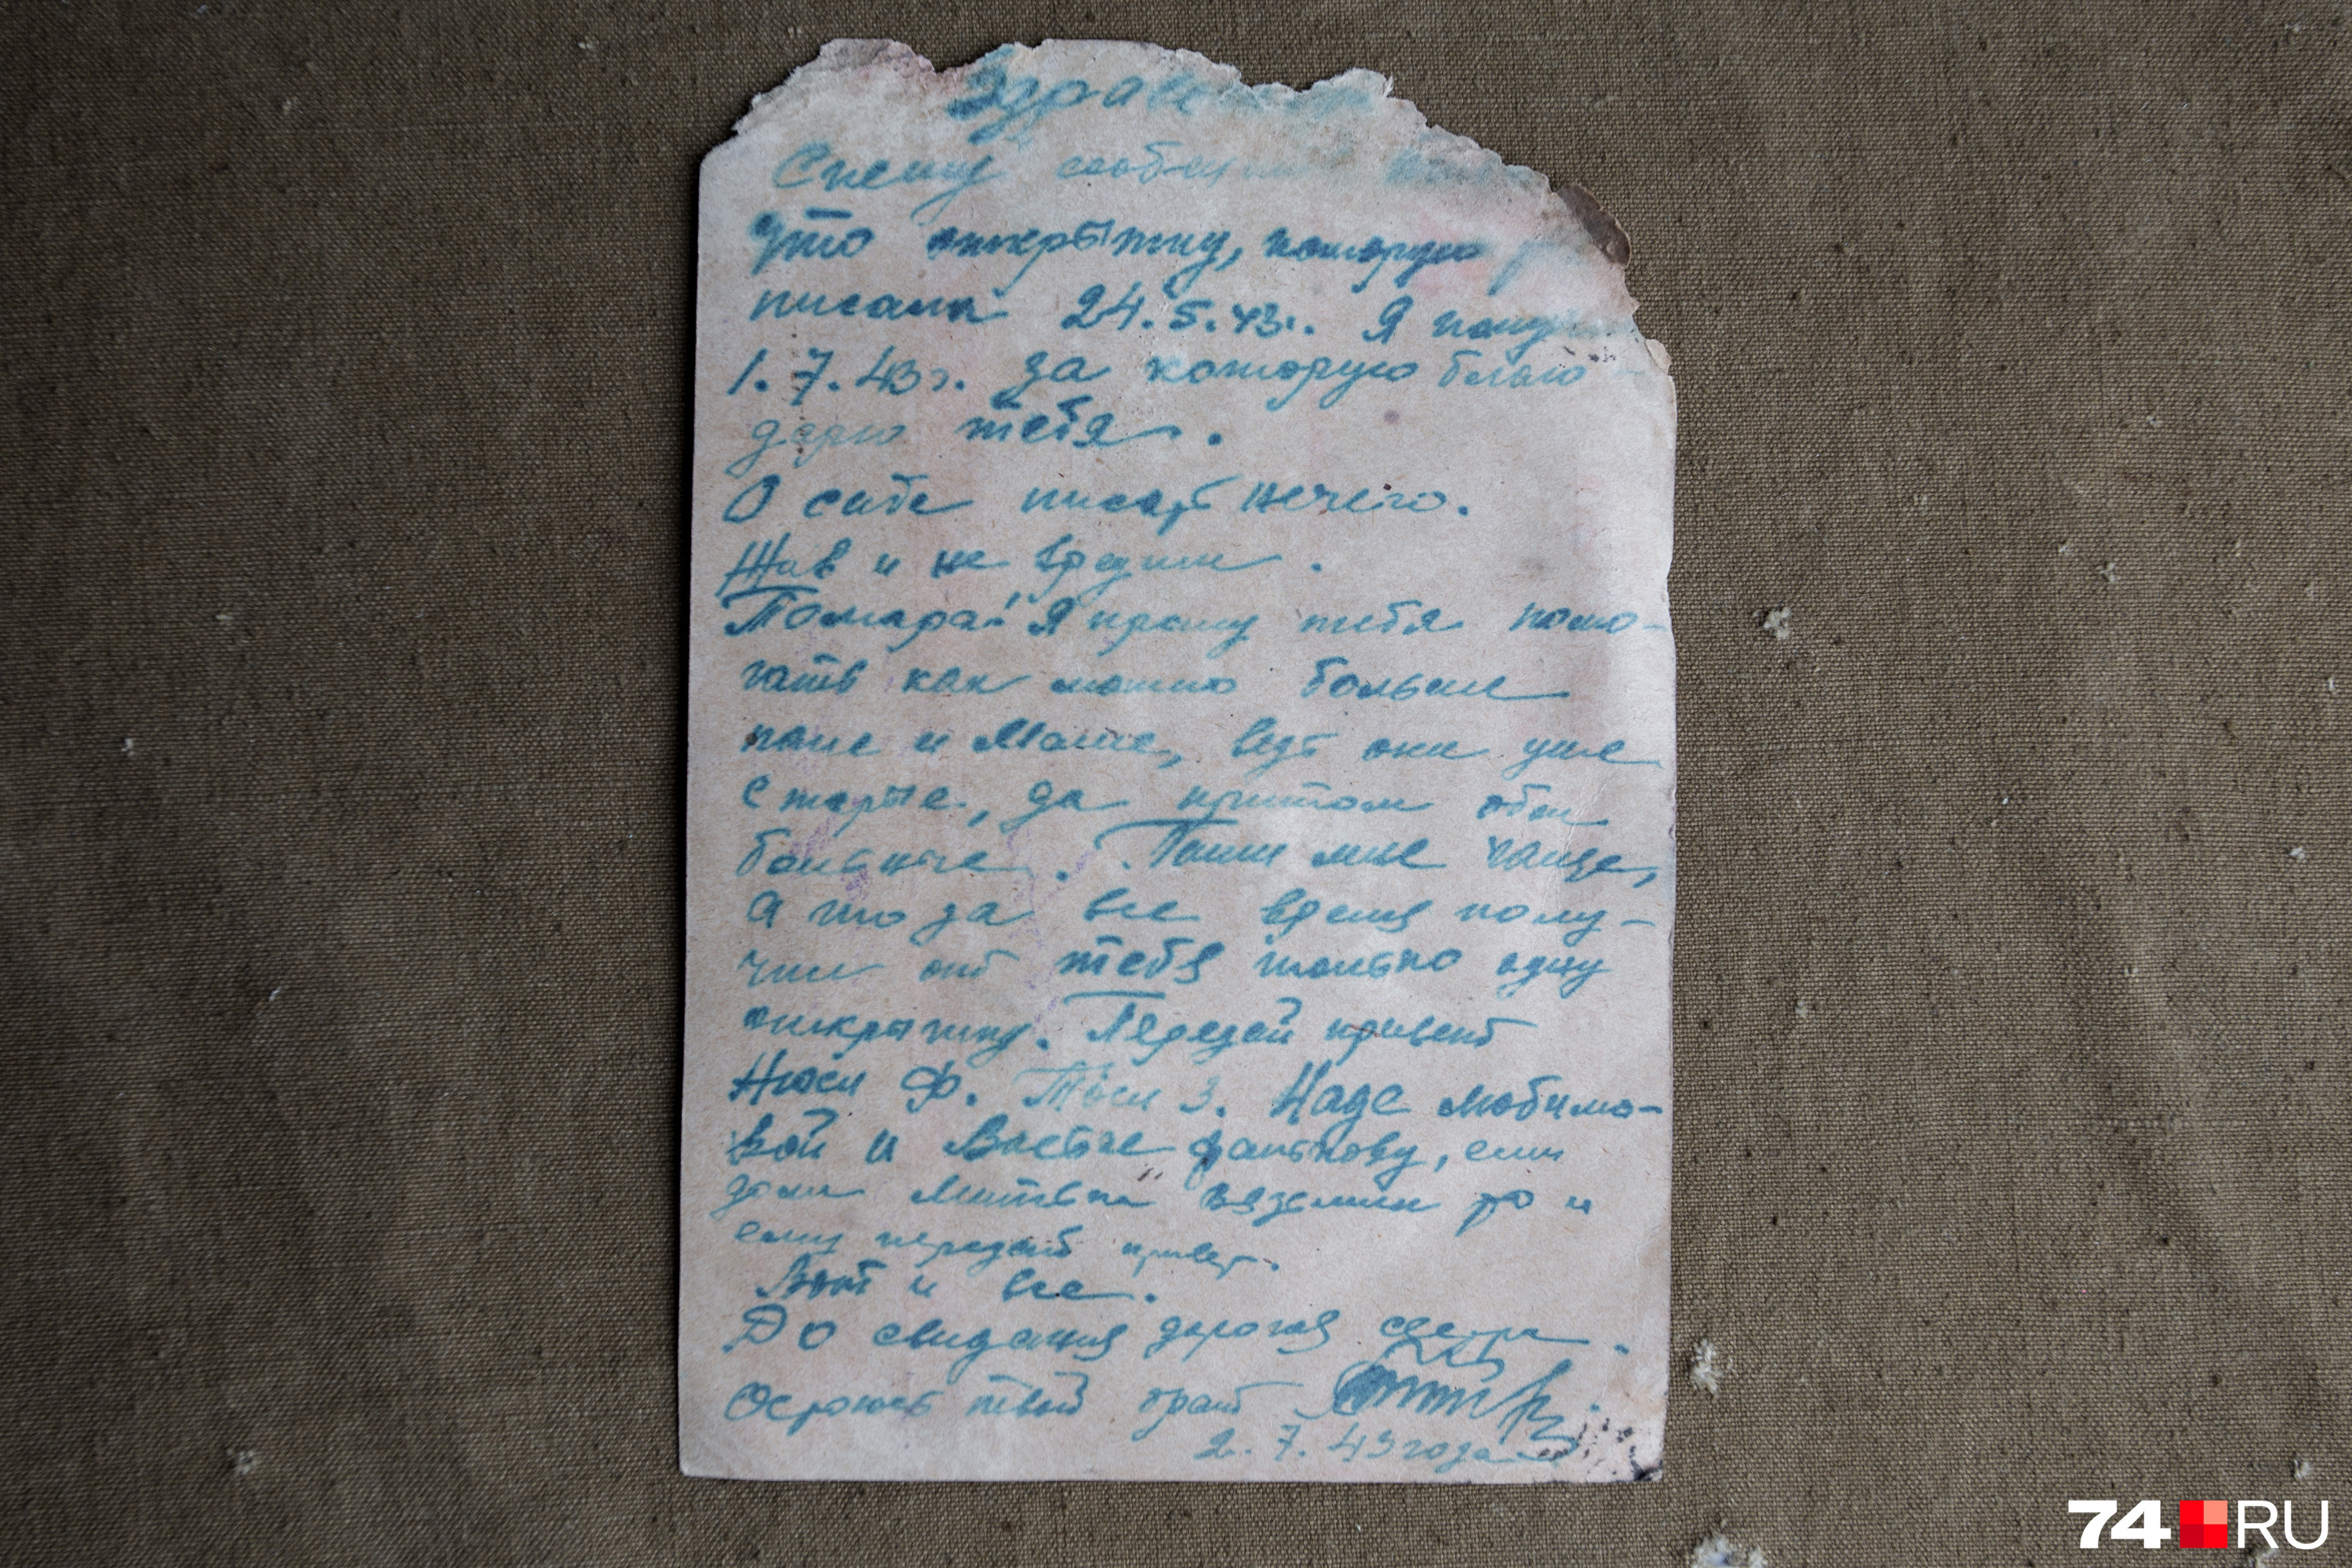 Здрав
Спешу сообщить
что открытку, которую
писала 24.5.43г. Я получил
1.7.43г. за которую благо-
дарю тебя.
О себе писать нечего.
Жив и не вредим.
Томара! Я прошу тебя помо-
гать как можно больше
папе и Маме, ведь они уже
старые, да притом обои
больные. Пиши мне чаще,
а то за все время полу-
чил от тебя только одну
открытку. Передай привет
Нюси Ф. Тоси З. Наде Любимо-
вой и Фалькову, если
дома то и
ему передай привет.
Вот и все.
До свидания дорогая сестра.
Остоюсь твой брат
2.7.43 года
74 RU